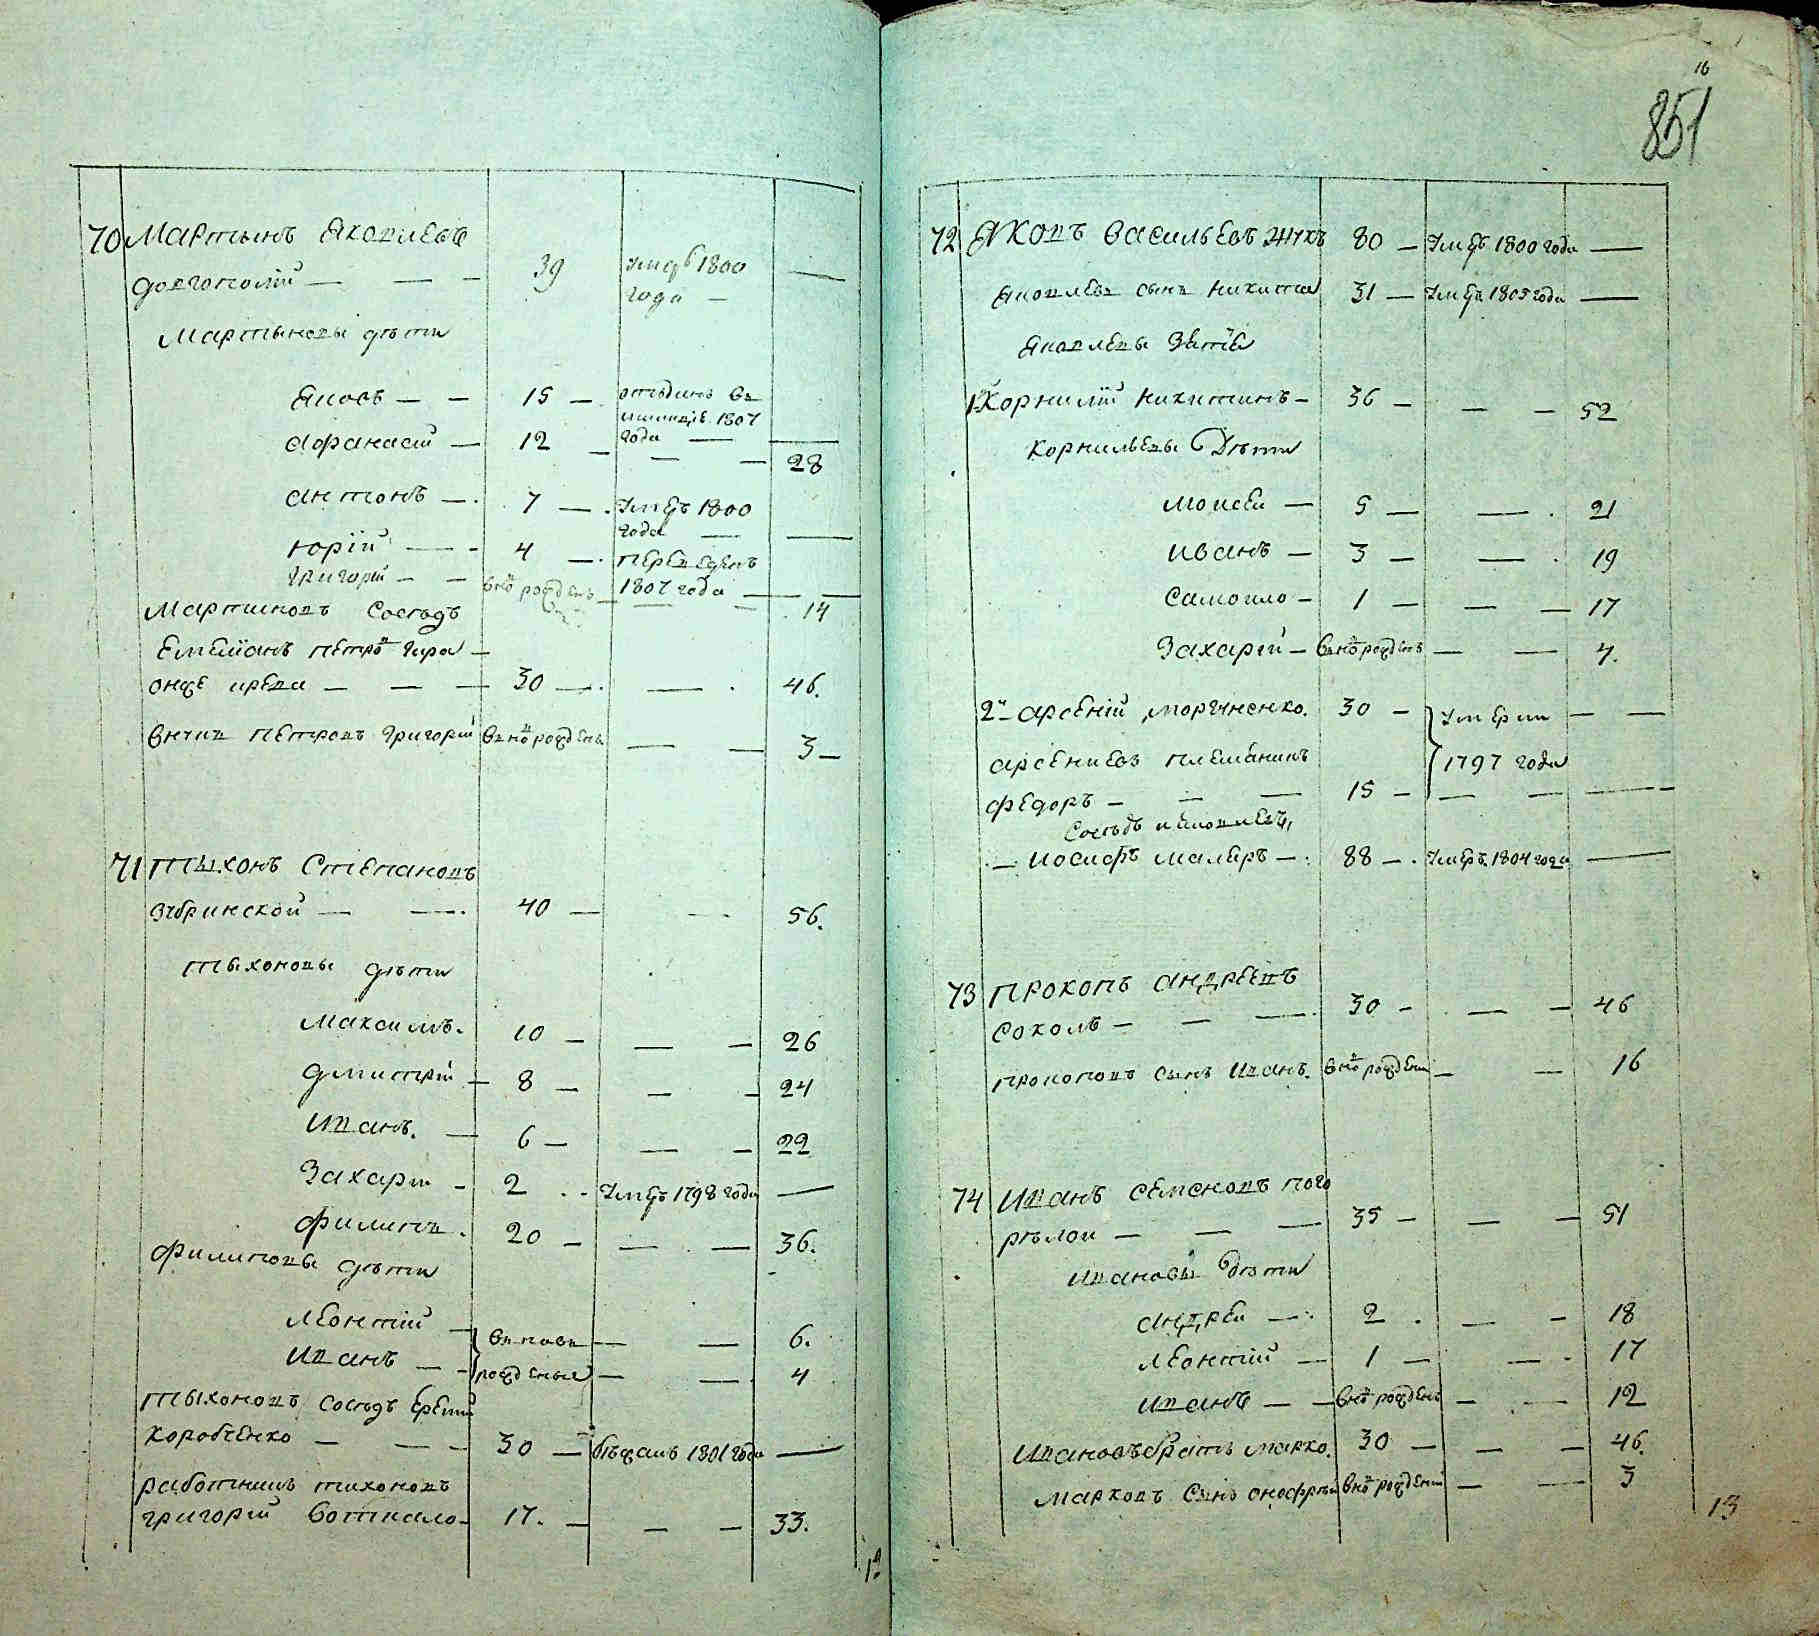 70 Мартынъ Яковлевъ
Долгополый — — — 39 умеръ 1800
года —
Мартыновы дѣти
Яковъ — — 15 — отъданъ въ
милицiе 1807
года —
Афанасiй — 12 — — — 28
Антонъ — 7 — умеръ 1800
года — —
Юрiй — - 4 — переведенъ
1807 года —
Григорiй — — вновь рожденъ — — 14
Мартиновъ сосѣдъ
Емелiанъ Петровъ
30 — — 46.
Внукъ Петровъ Григорiй вновь рожденъ — — 3 —
71 Тыхонъ Степановъ
Зубринской — — 40 — — 56.
Тыхоновы дѣти
Максимъ. 10 — — — 26
Дмитрiй — 8 — — — 24
Иванъ. — 6 — — — 22
Захарiй — 2 - - умеръ 1798 года —
Филипъ. 20 — — — 36.
Филиповы дѣти
Леонтiй — вновь — — 6.
Иванъ — — рожденыи — — 4
Тыхоновъ сосѣдъ Ерема
Коробченко — — — 30 — бѣжалъ 1801 года —
Работникъ Тихоновъ
Григорiй 17. — — — 33.
12
16
851
72 Яковъ Васильевъ Жукъ 80 — умеръ 1800 года —
Яковлевъ сынъ Никита 31 — умеръ 1805 года —
Яковлевы зятѣ
1й Корнилiй Никитинъ — 36 — — — 52
Корнильевы Дѣти
Моисей — 5 — — . 21
Иванъ — 3 — — . 19
Самоило — 1 — — — 17
Захарiй — вновь рожденъ — — 4.
2й — Арсенiй Моргуненко. 30 — умерли — —
Арсениевъ племяникъ 1797 года
Федоръ — — — 15 — — — — —
Сосѣдъ Яковлевъ,
— Иосифъ Маляръ — . 88 — . умеръ 1804 года —
73 Прокопъ Андреевъ
Соколъ — — — 30 — — — 46
Прокоповъ сынъ Иванъ. вновь рожденъ — — 16
74 Иванъ Семеновъ Пого
рѣлой — — — 35 — — — 51
Ивановы Дѣти
Андрей — . 2 . — — 18
Леонтiй — 1 — — - 17
Иванъ — — вновь рожденъ — — 12
Ивановъ братъ Марко. 30 — — — 46.
Марковъ сынъ Онофрiй вновь рожденъ — — 3
13